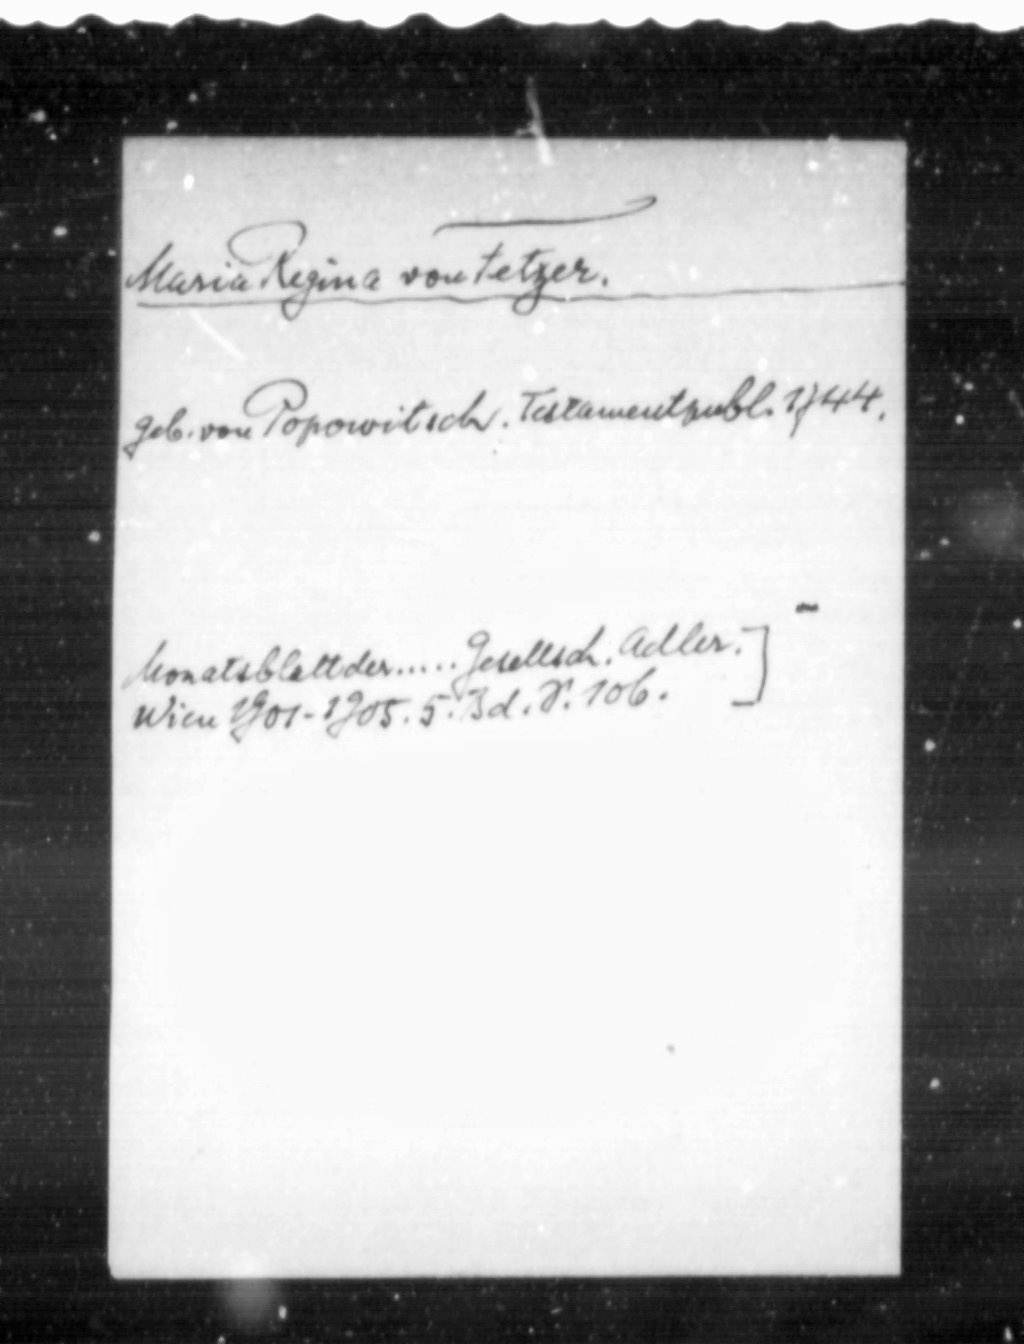 Maria Regina von Fetzer.
geb. von Popowitsch. Testamentpubl. 1744.
Monatsblatt der ..... Gesellsch. Adler.]
Wien 1901-1905. 5. Bd. S. 106.